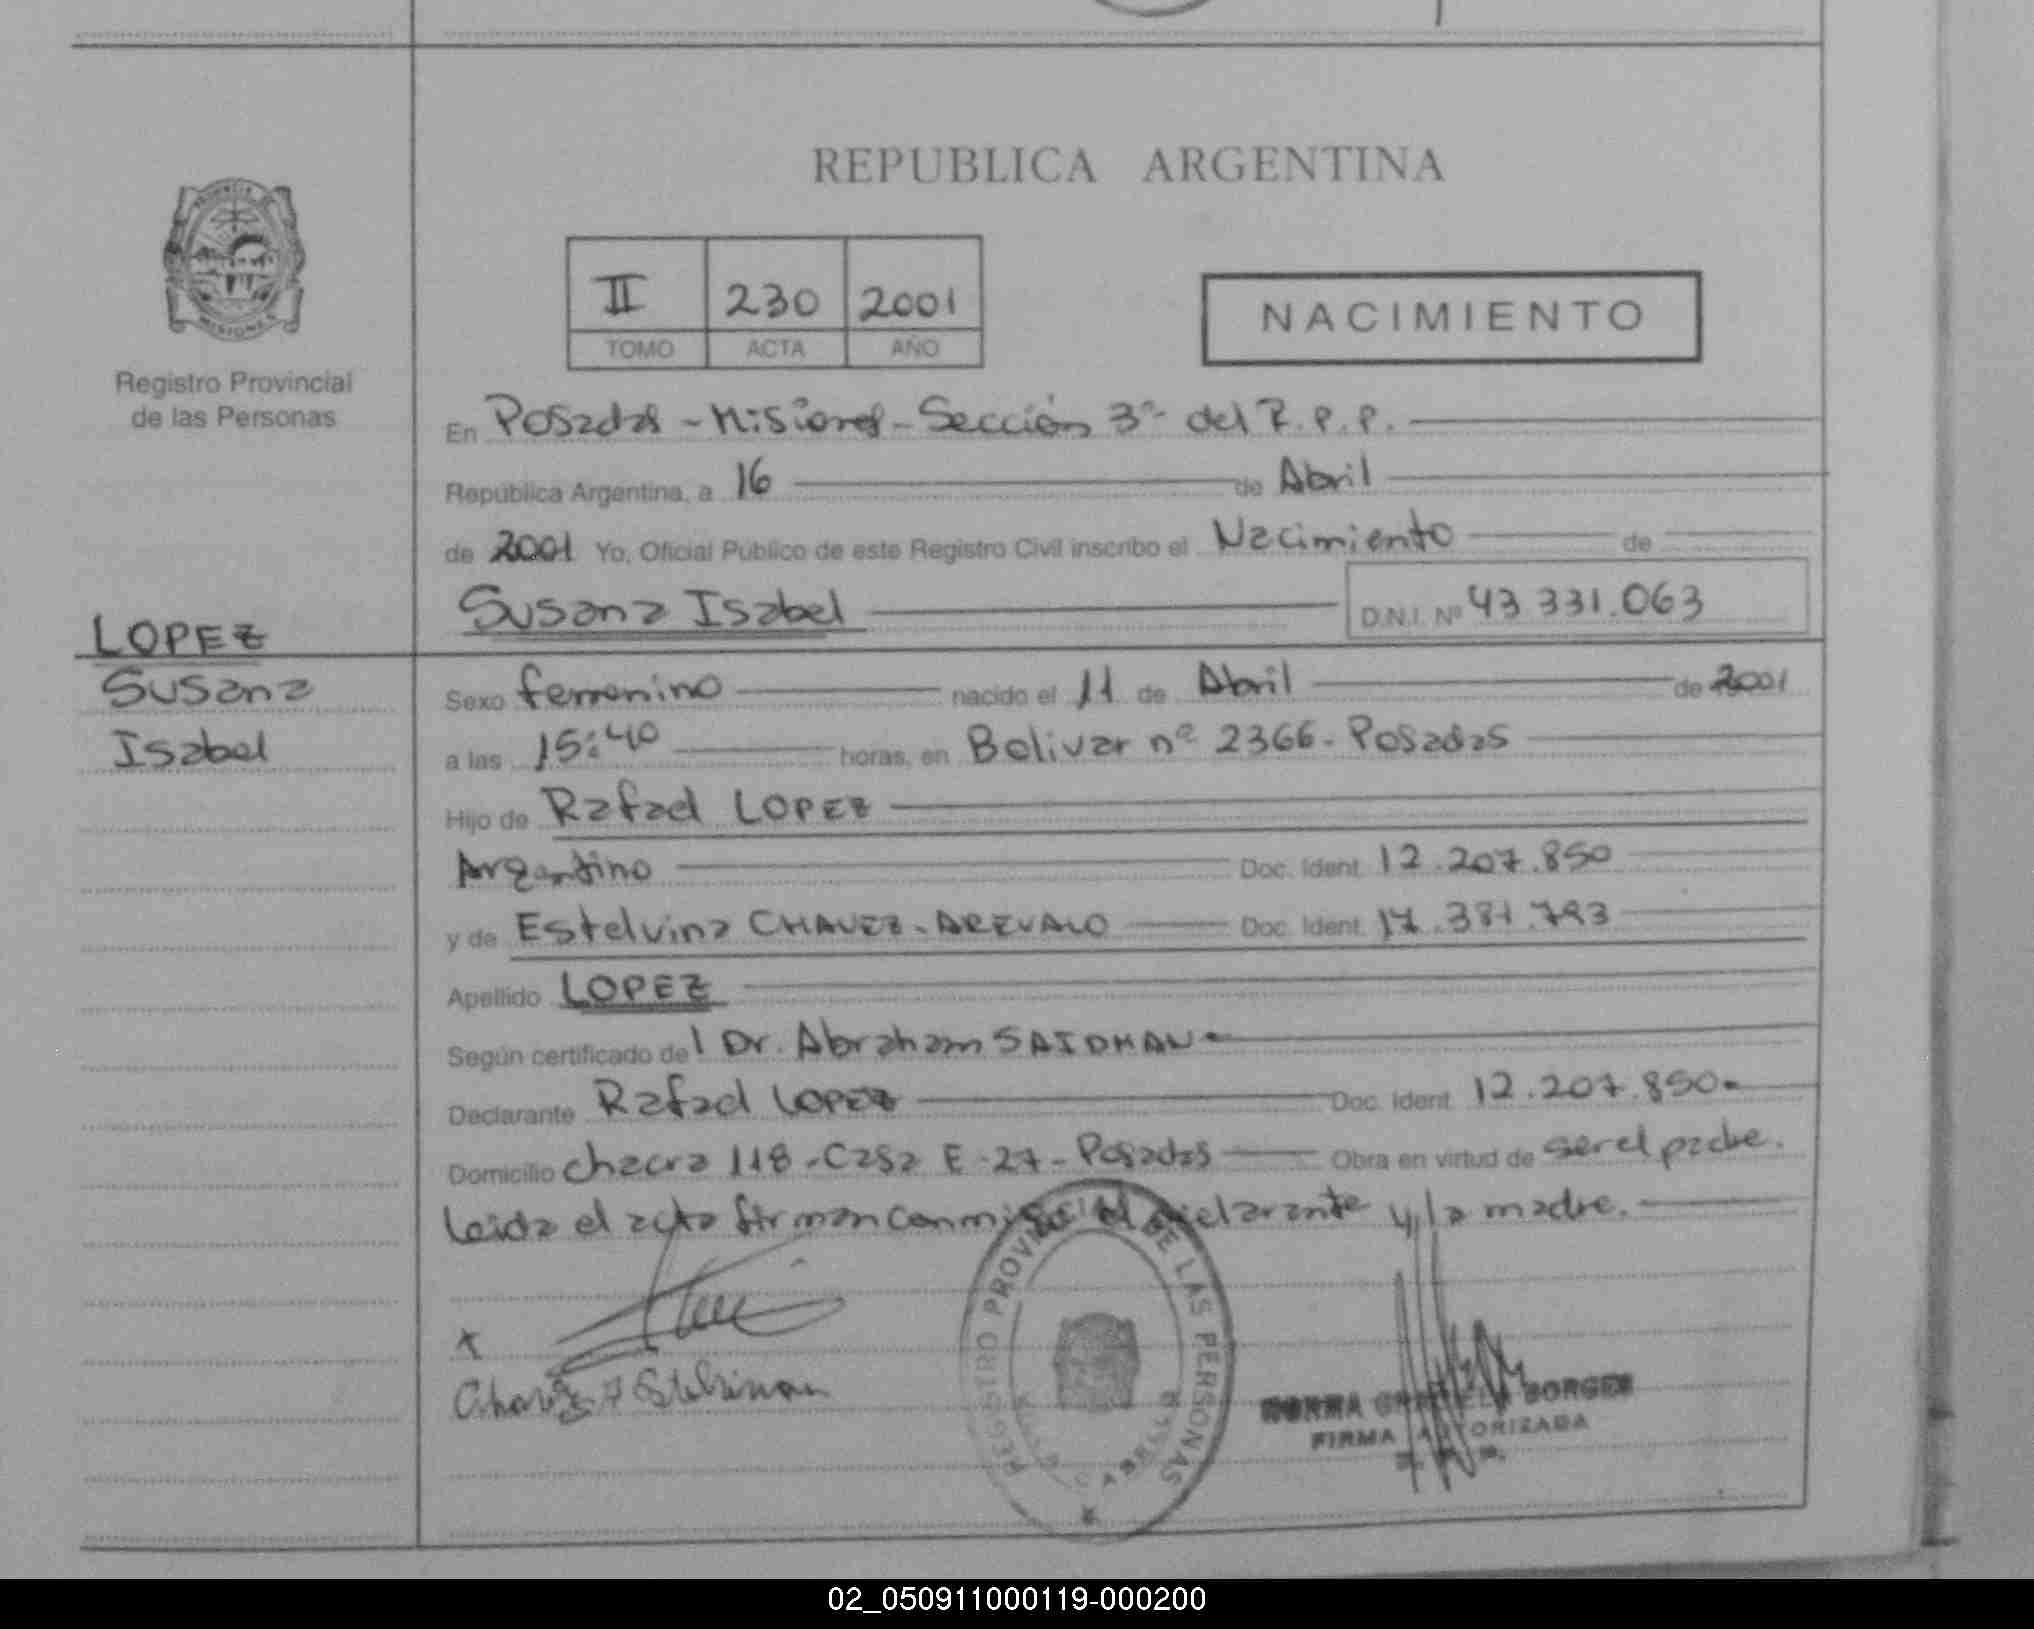 REPUBLICA ARGENTINA
PROVINCIA DE
MISIONES
Registro Provincial
de las Personas
II 230 2001
TOMO ACTA AÑO
NACIMIENTO
En Posadas - Misiones - Sección 3ª del R.P.P.
República Argentina, a 16 de Abril
de 2001 Yo, Oficial Público de este Registro Civil inscribo el Nacimiento de
Susana Isabel D.N.I. Nº 43.331.063
LOPEZ
Susana
Isabel
Sexo femenino nacido el 11 de Abril de 2001
a las 15:40 horas, en Bolivar nº 2366 - Posadas
Hijo de Rafael LOPEZ
Argentino Doc. Ident. 12.207.850
y de Estelvina CHAVEZ - AREVALO Doc. Ident. 17.381.793
Apellido LOPEZ
Según certificado del Dr. Abraham SAIDMAN
Declarante Rafael LOPEZ Doc. Ident. 12.207.850
Domicilio chacra 118 - Casa E - 27 - Posadas Obra en virtud de ser el padre.
Leida el acta firman conmigo el declarante y la madre.
REGISTRO PROVINCIAL DE LAS PERSONAS
BORGES
FIRMA AUTORIZADA
02_050911000119-000200